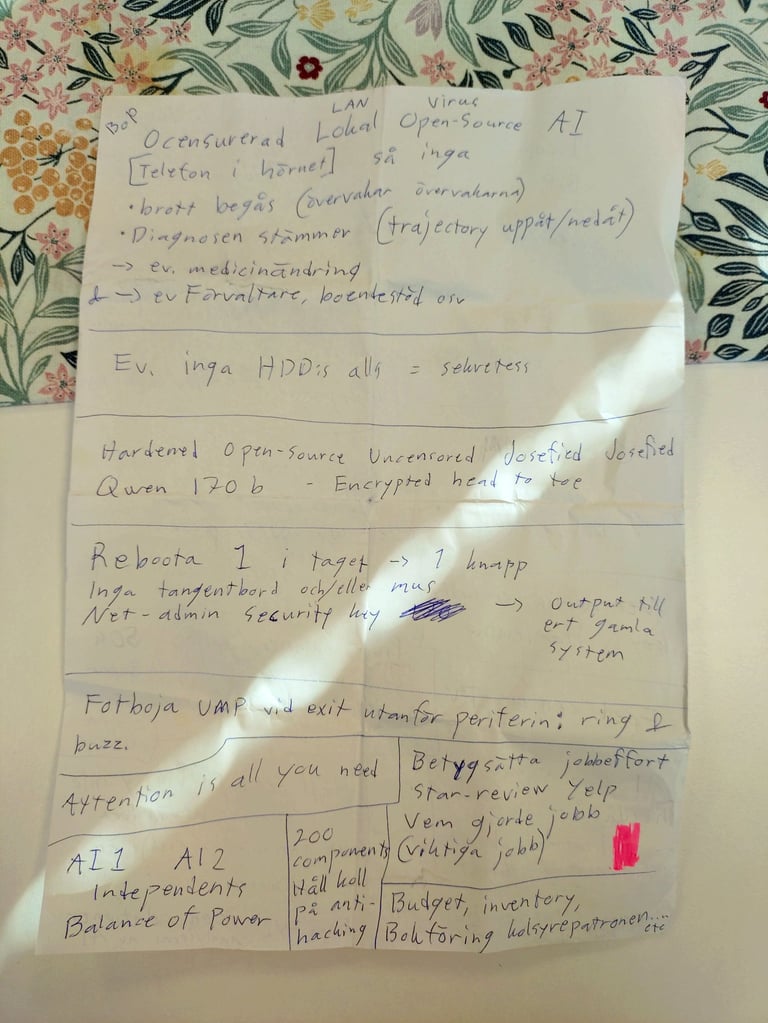 BoP
LAN Virus
Ocensurerad Lokal Open-Source AI
[Telefon i hörnet] så inga
• brott begås (övervakar övervakarna)
• Diagnosen stämmer (trajectory uppåt/nedåt)
→ ev. medicinändring
& → ev Förvaltare, boendestöd osv
Ev. inga HDD:s alls = sekretess
Hardened Open-source Uncensored Josefied Josefied
Qwen 170 b - Encrypted head to toe
Reboota 1 i taget → 1 knapp
Inga tangentbord och/eller mus
Net-admin security key → Output till
ert gamla
system
Fotboja UMP vid exit utanför periferin: ring &
buzz.
Attention is all you need
Betygsätta jobbeffort
Star-review Yelp
Vem gjorde jobb
(viktiga jobb)
AI 1 AI 2
Independents
Balance of Power
200
components
Håll koll
på anti-
hacking
Budget, inventory,
Bokföring kolsyrepatronen....
etc